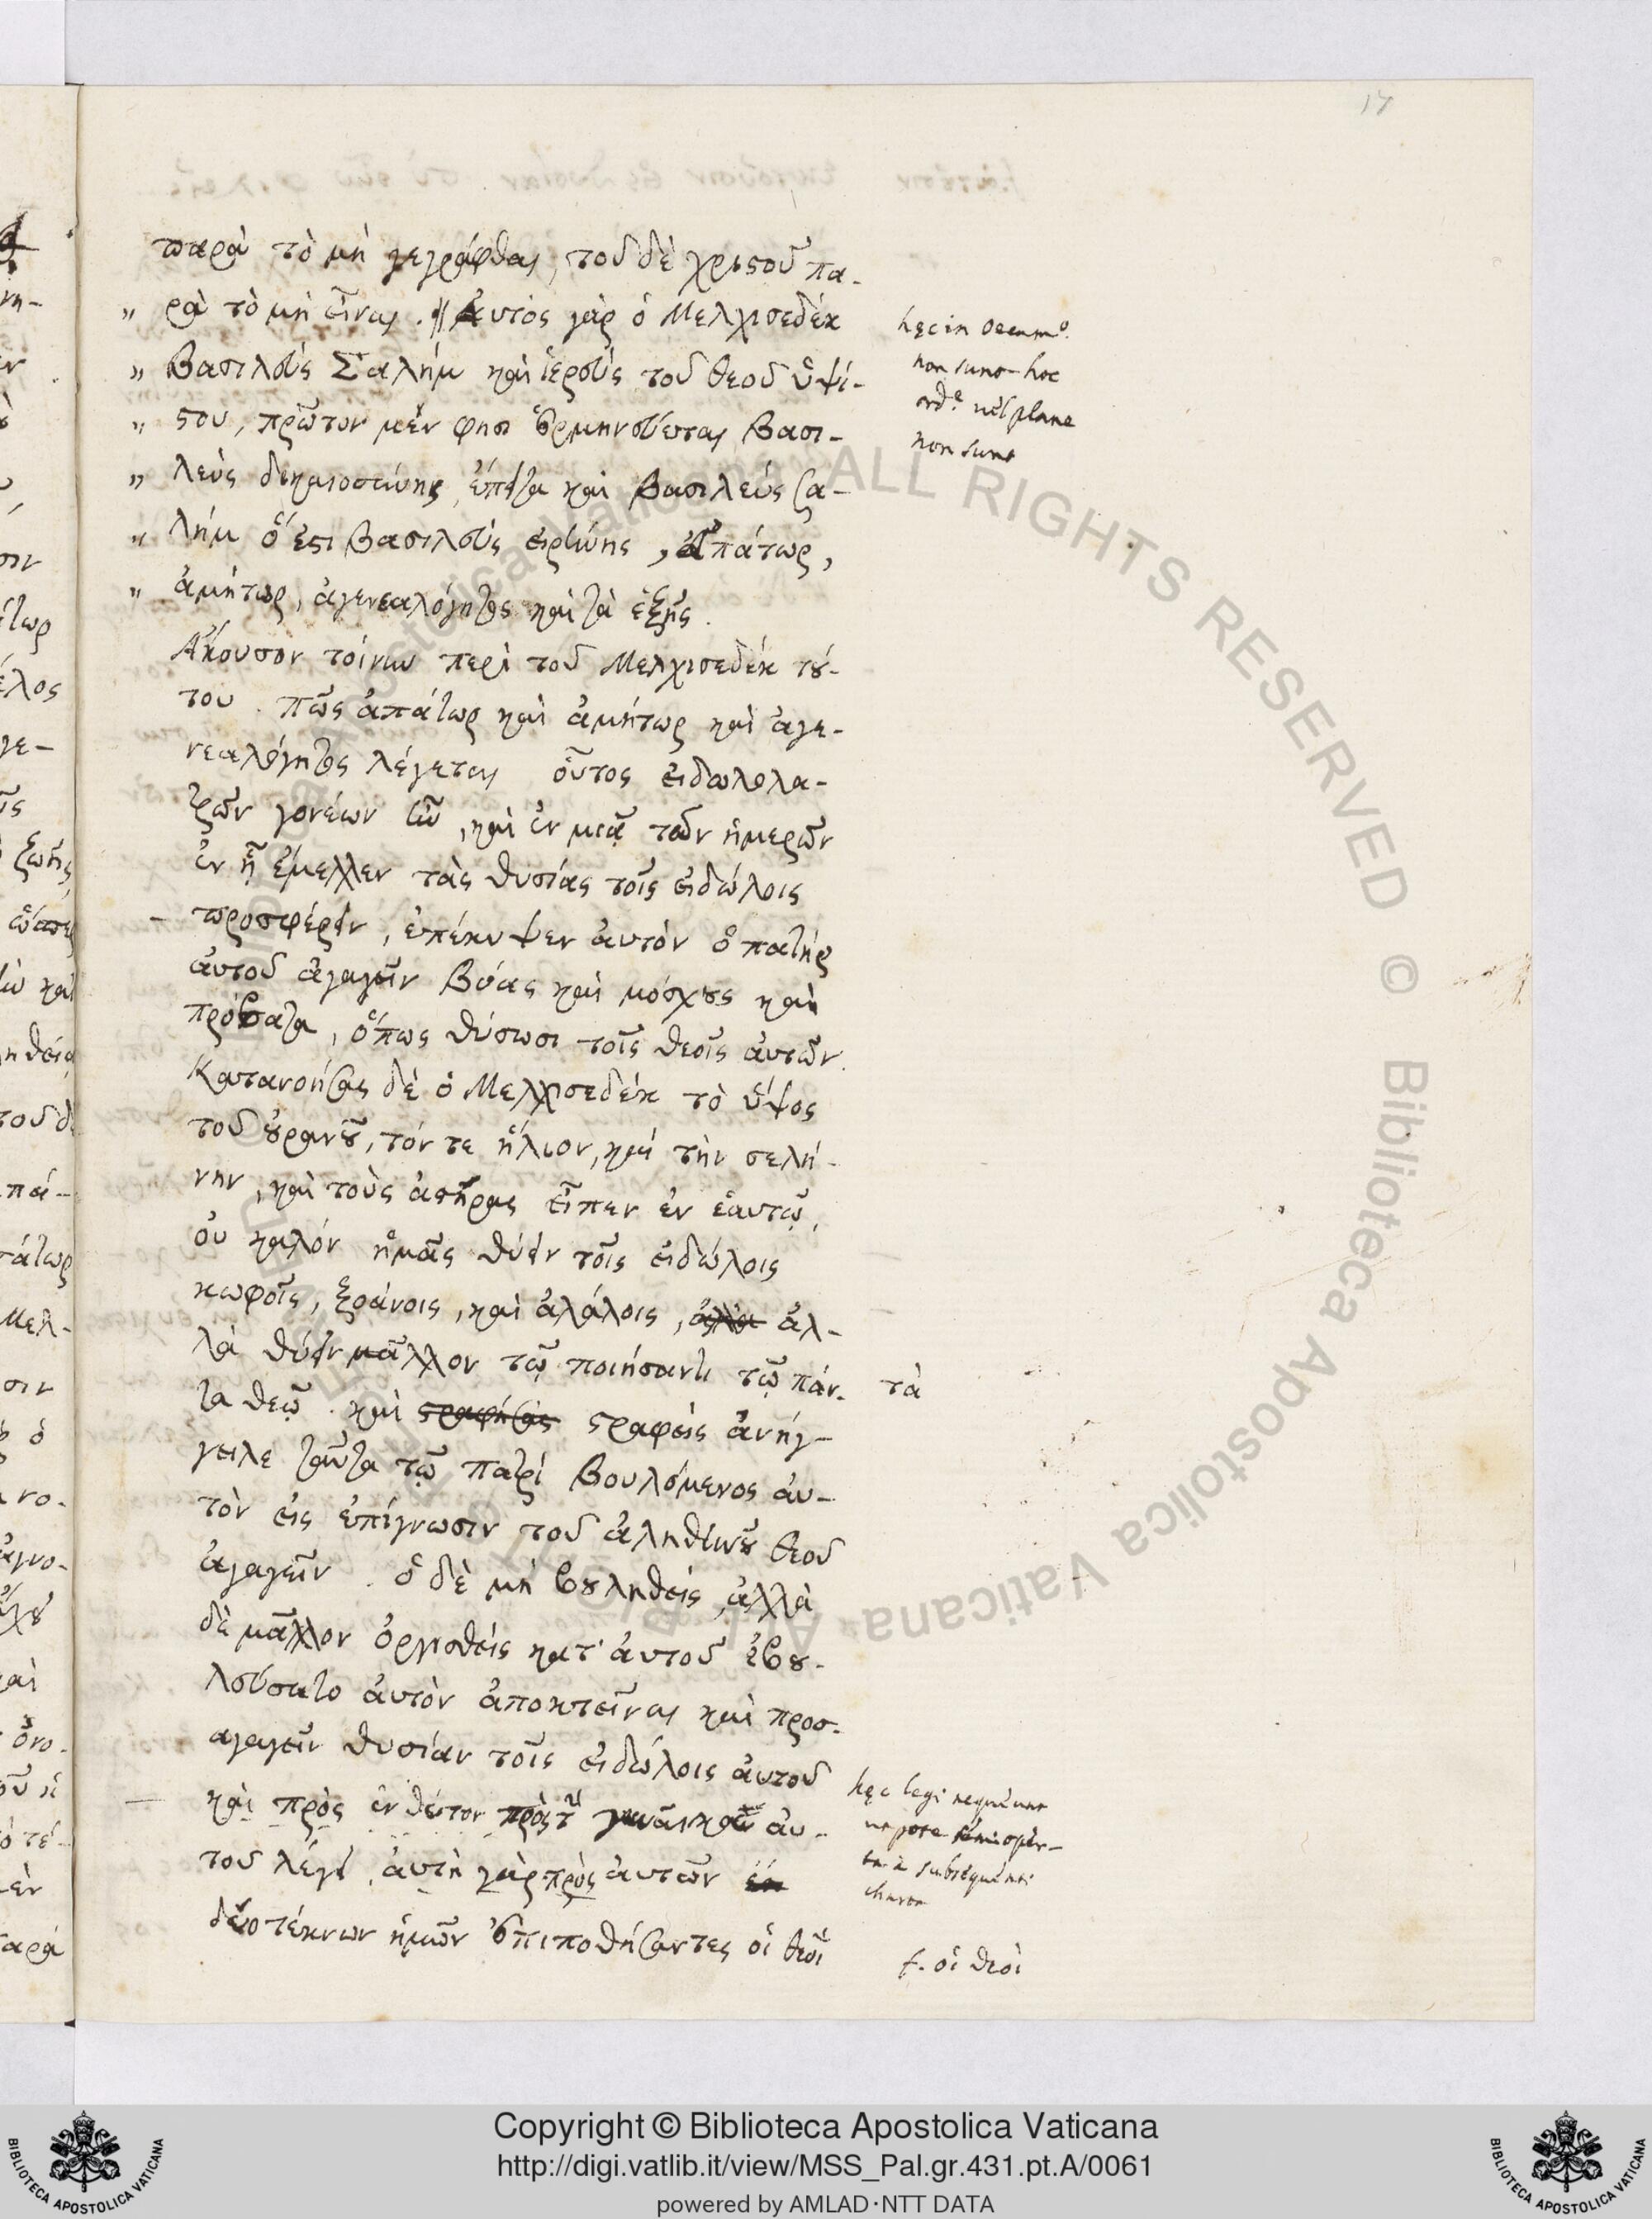 17
παρὰ τὸ μὴ γεγράφθαι, τοῦ δὲ χριστοῦ πα-
" ρὰ τὸ μὴ εἶναι. Αὐτὸς γὰρ ὁ Μελχισεδὲκ
" Βασιλεὺς Σαλὴμ καὶ ἱερεὺς τοῦ θεοῦ ὑψί-
" στου, πρῶτον μὲν φησι ἑρμηνεύεται Βασι-
" λεὺς δικαιοσύνης, ἔπειτα καὶ Βασιλεὺς Σα-
" λὴμ ὅ ἐστι Βασιλεὺς εἰρήνης, ἀπάτωρ,
" ἀμήτωρ, ἀγενεαλόγητος καὶ τὰ ἑξῆς.
Ἄκουσον τοίνυν περὶ τοῦ Μελχισεδὲκ τού-
του. πῶς ἀπάτωρ καὶ ἀμήτωρ καὶ ἀγε-
νεαλόγητος λέγεται οὗτος εἰδωλολα-
τρῶν γονέων ἦν, καὶ ἐν μιᾷ τῶν ἡμερῶν
ἐν ᾗ ἔμελλεν τὰς θυσίας τοῖς εἰδώλοις
προσφέρειν, ἐπέκυψεν αὐτὸν ὁ πατὴρ
αὐτοῦ ἀγαγεῖν βόας καὶ μόσχους καὶ
πρόβατα, ὅπως θύσωσι τοῖς θεοῖς αὐτῶν.
Κατανοήσας δὲ ὁ Μελχισεδὲκ τὸ ὕψος
τοῦ οὐρανοῦ, τόν τε ἥλιον, καὶ τὴν σελή-
νην, καὶ τοὺς ἀστέρας εἶπεν ἐν ἑαυτῷ,
οὐ καλόν ἡμᾶς θύειν τοῖς εἰδώλοις
κωφοῖς, ξοάνοις, καὶ ἀλάλοις, ἀλλὰ ἀλ-
λὰ θύειν μᾶλλον τῷ ποιήσαντι τῷ πάν-
τα θεῷ. καὶ στραφήσας στραφεὶς ἀνήγ-
γειλε ταῦτα τῷ πατρὶ βουλόμενος αὐ-
τὸν εἰς ἐπίγνωσιν τοῦ ἀληθινοῦ θεοῦ
ἀγαγεῖν. ὁ δὲ μὴ βουληθεὶς, ἀλλὰ
δὲ μᾶλλον ὀργισθεὶς κατ' αὐτοῦ ἐβου-
λεύσατο αὐτὸν ἀποκτεῖναι καὶ προσ-
αγαγεῖν θυσίαν τοῖς εἰδώλοις αὐτοῦ
καὶ πρὸς ἐνθέτον πρὸς τὴν γυναῖκα αὐ-
τοῦ λέγει, αὐτὴ γὰρ πρὸς αὐτῶν
δύο τέκνων ἡμῶν ἐπιποθήσαντες οἱ θεοὶ
hęc in oecum°.
non sunt hoc
ord.e vel plane
non sunt
τὰ
hęc legi nequeunt
ut pote
in subsequenti
charta
f. οἱ θεοὶ
Copyright © Biblioteca Apostolica Vaticana
http://digi.vatlib.it/view/MSS_Pal.gr.431.pt.A/0061
powered by AMLAD·NTT DATA
BIBLIOTECA APOSTOLICA VATICANA
BIBLIOTECA APOSTOLICA VATICANA
ALL RIGHTS RESERVED © Biblioteca Apostolica Vaticana